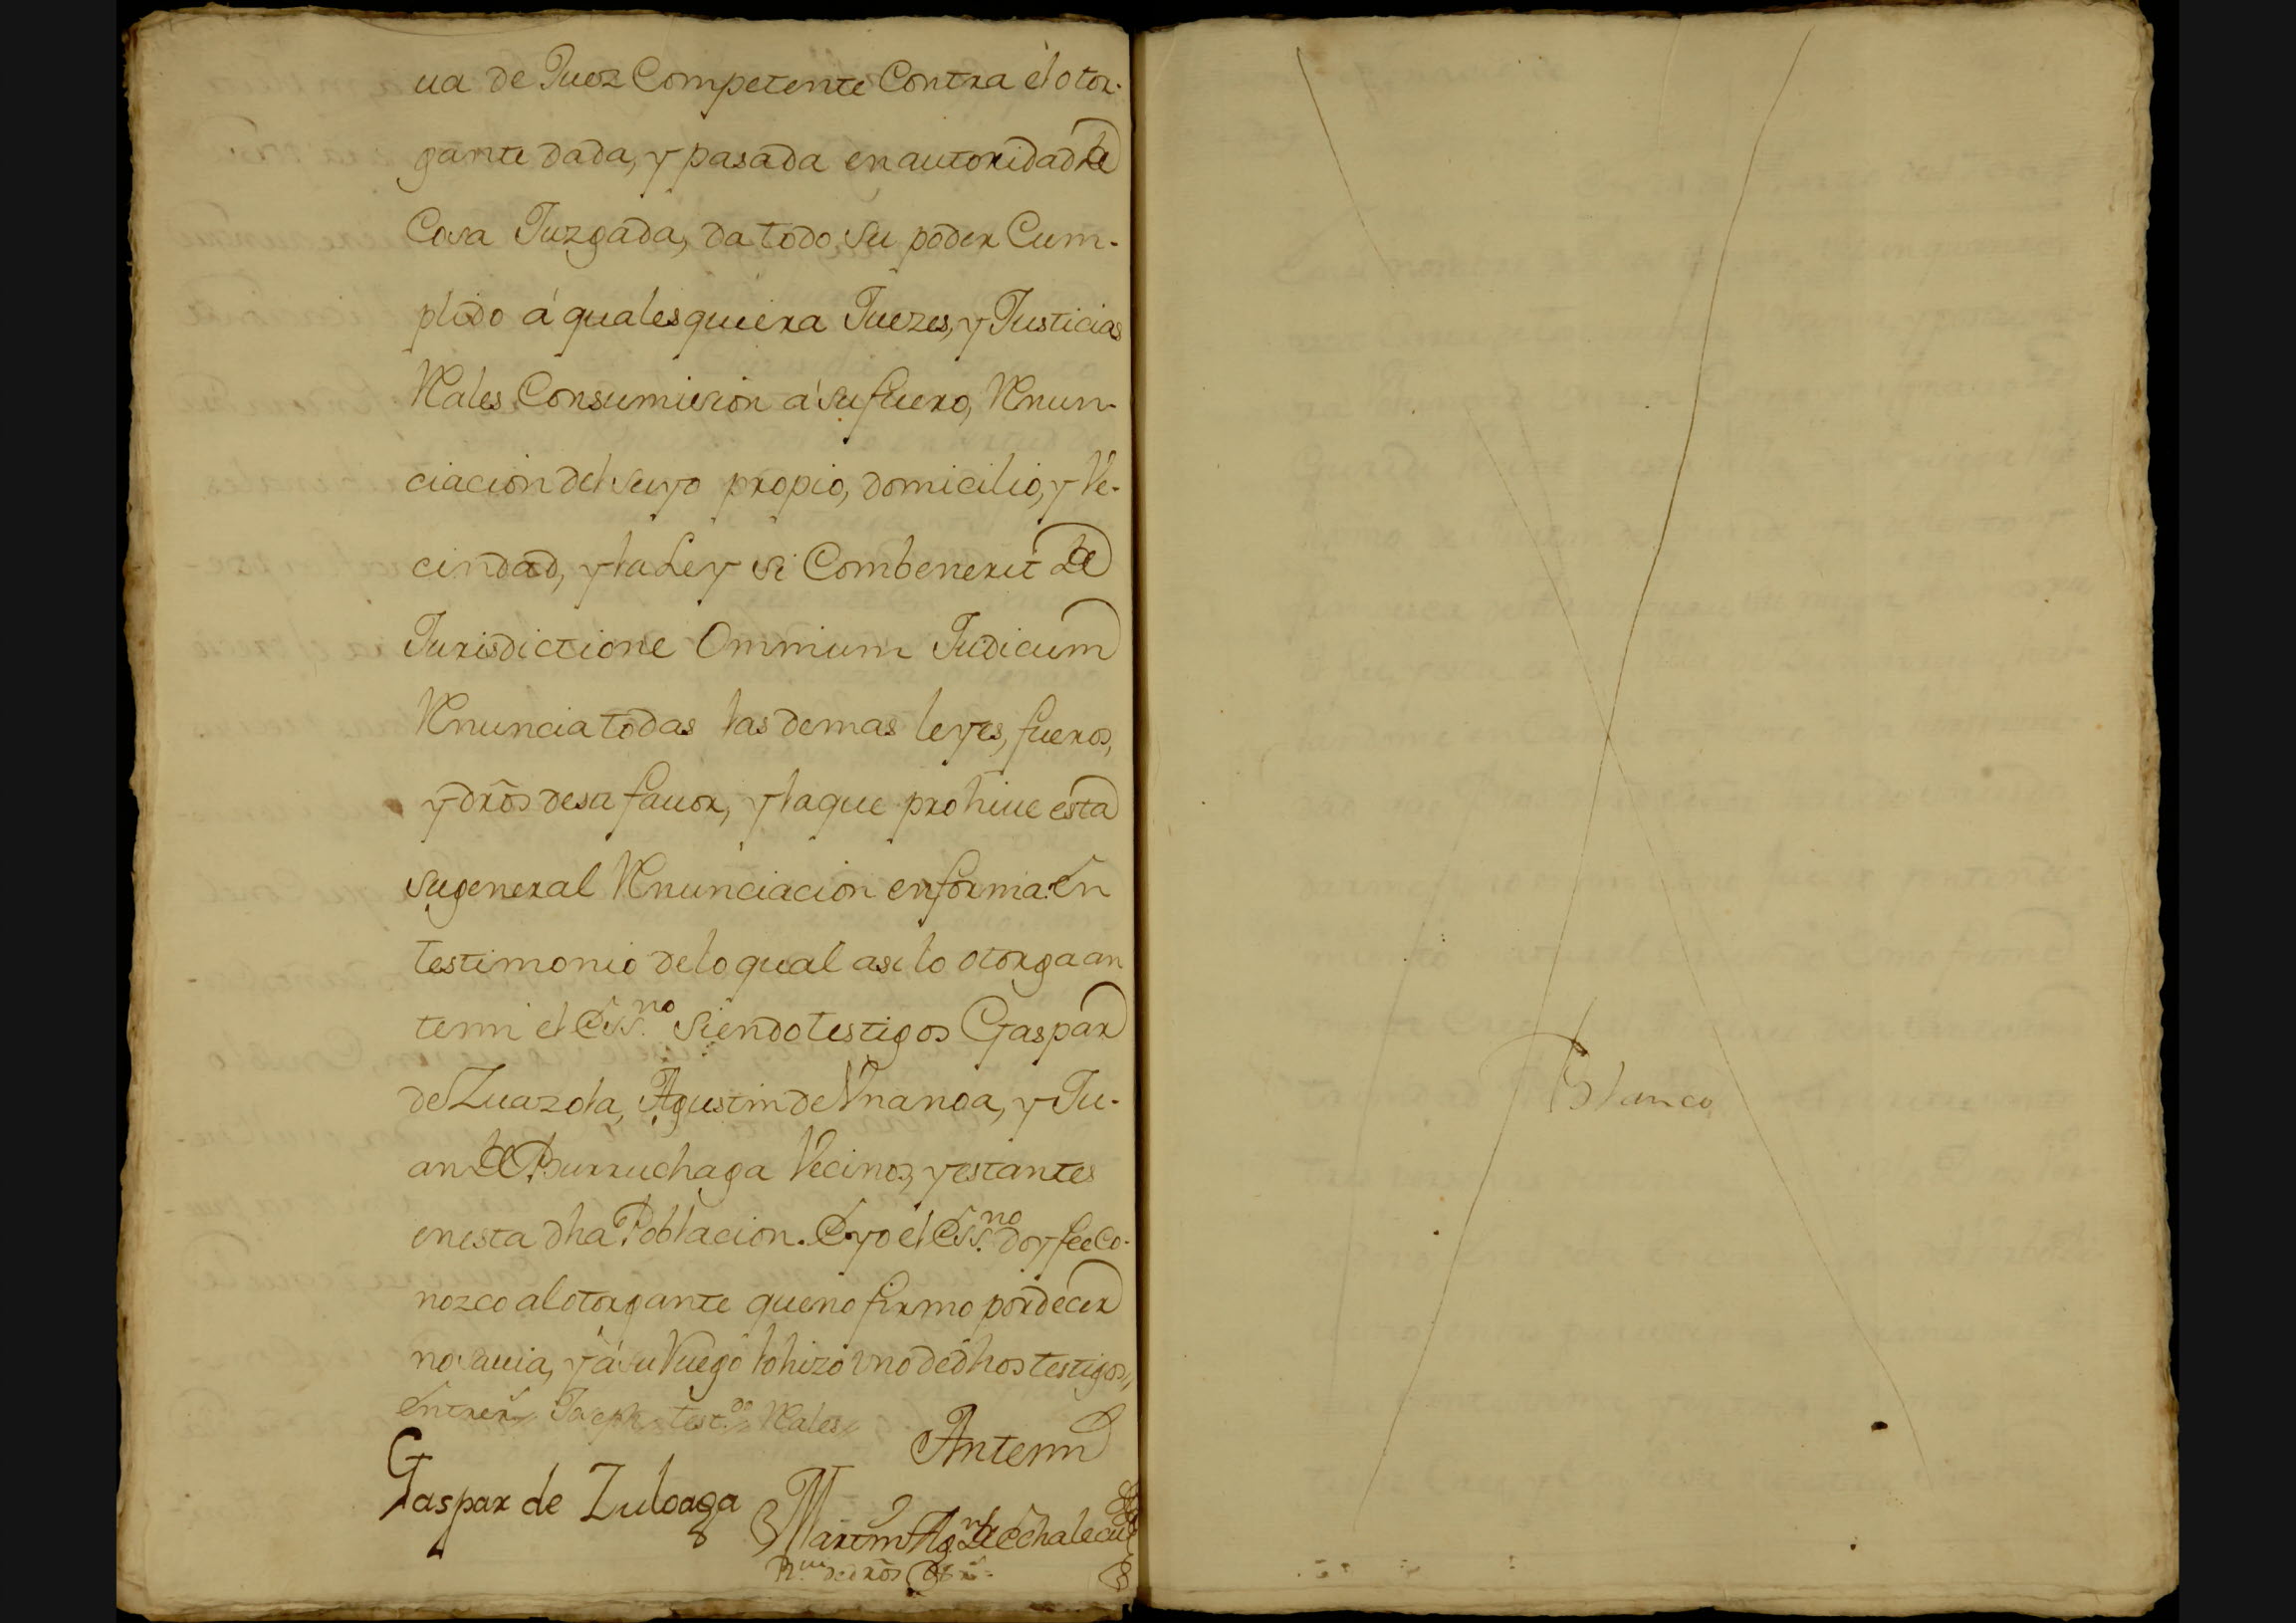 ua de Juez Competente Contra él otor-
gante dada, y pasada en autoridad de
Cosa Juzgada, da todo su poder Cum-
plido á qualesquiera Juezes, y Justicias
Rales Consumision á su fuero, Renun-
ciacion del suyo propio, domicilio, y Ve-
cindad, y la Ley si Combenerit de
Jurisdictione Omnium Judicum
Renuncia todas las demas leyes, fueros,
y dr̃os desa fauor, y la que prohiue ésta
su general Renunciacion en forma. En
testimonio de lo qual asi lo otorga an
temi el Ess.no siendo testigos Gaspar
de Zuazola, Agustin de Vnanoa, y Ju-
an de Burruchaga Vecinos, y estantes
en esta dha Poblacion. E yo él Ess.no doy fee Co-
nozco al otorgante que no firmo por decir
no sauia, y á su Ruego lo hizo vno de dhos testigos,
Entrerr.s Joseph, test.os Rales,
Antemi
Gaspar de Zuloaga
Martin Ag.n de Echalecu
dr̃os
Blanco